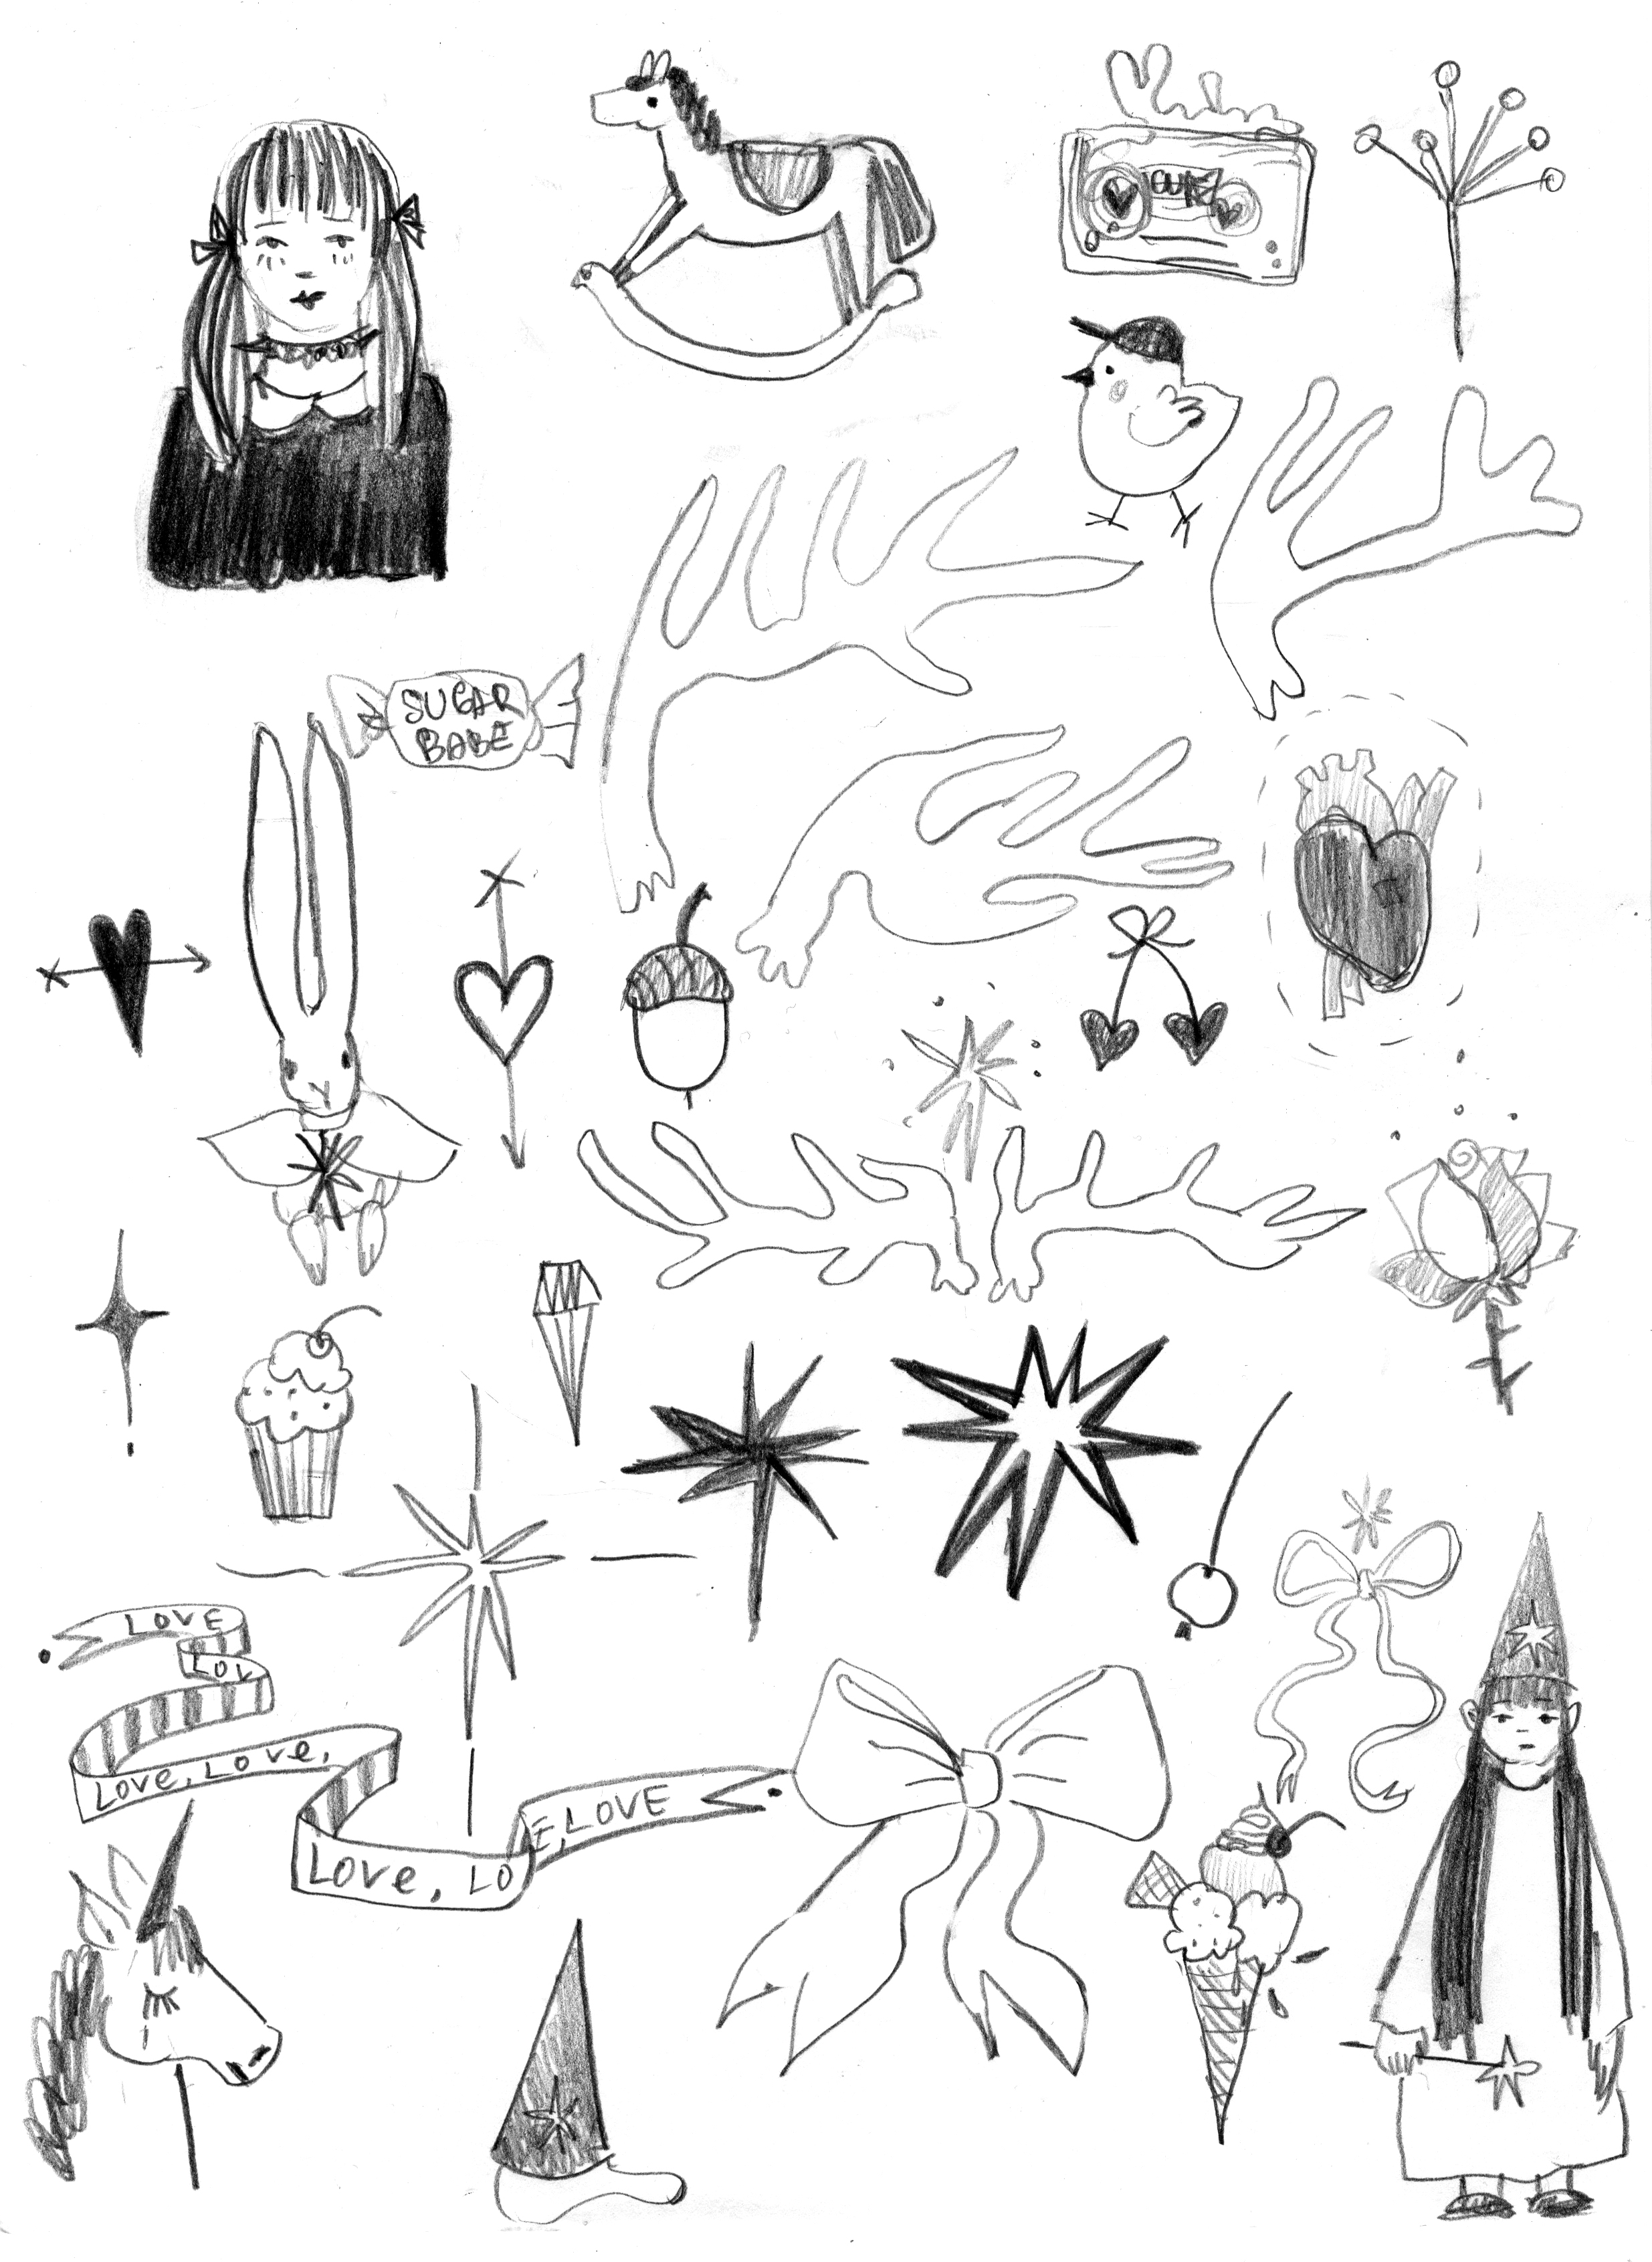 SUGAR
BABE
LOVE
LOV
Love, Love,
Love, LO
E, LOVE